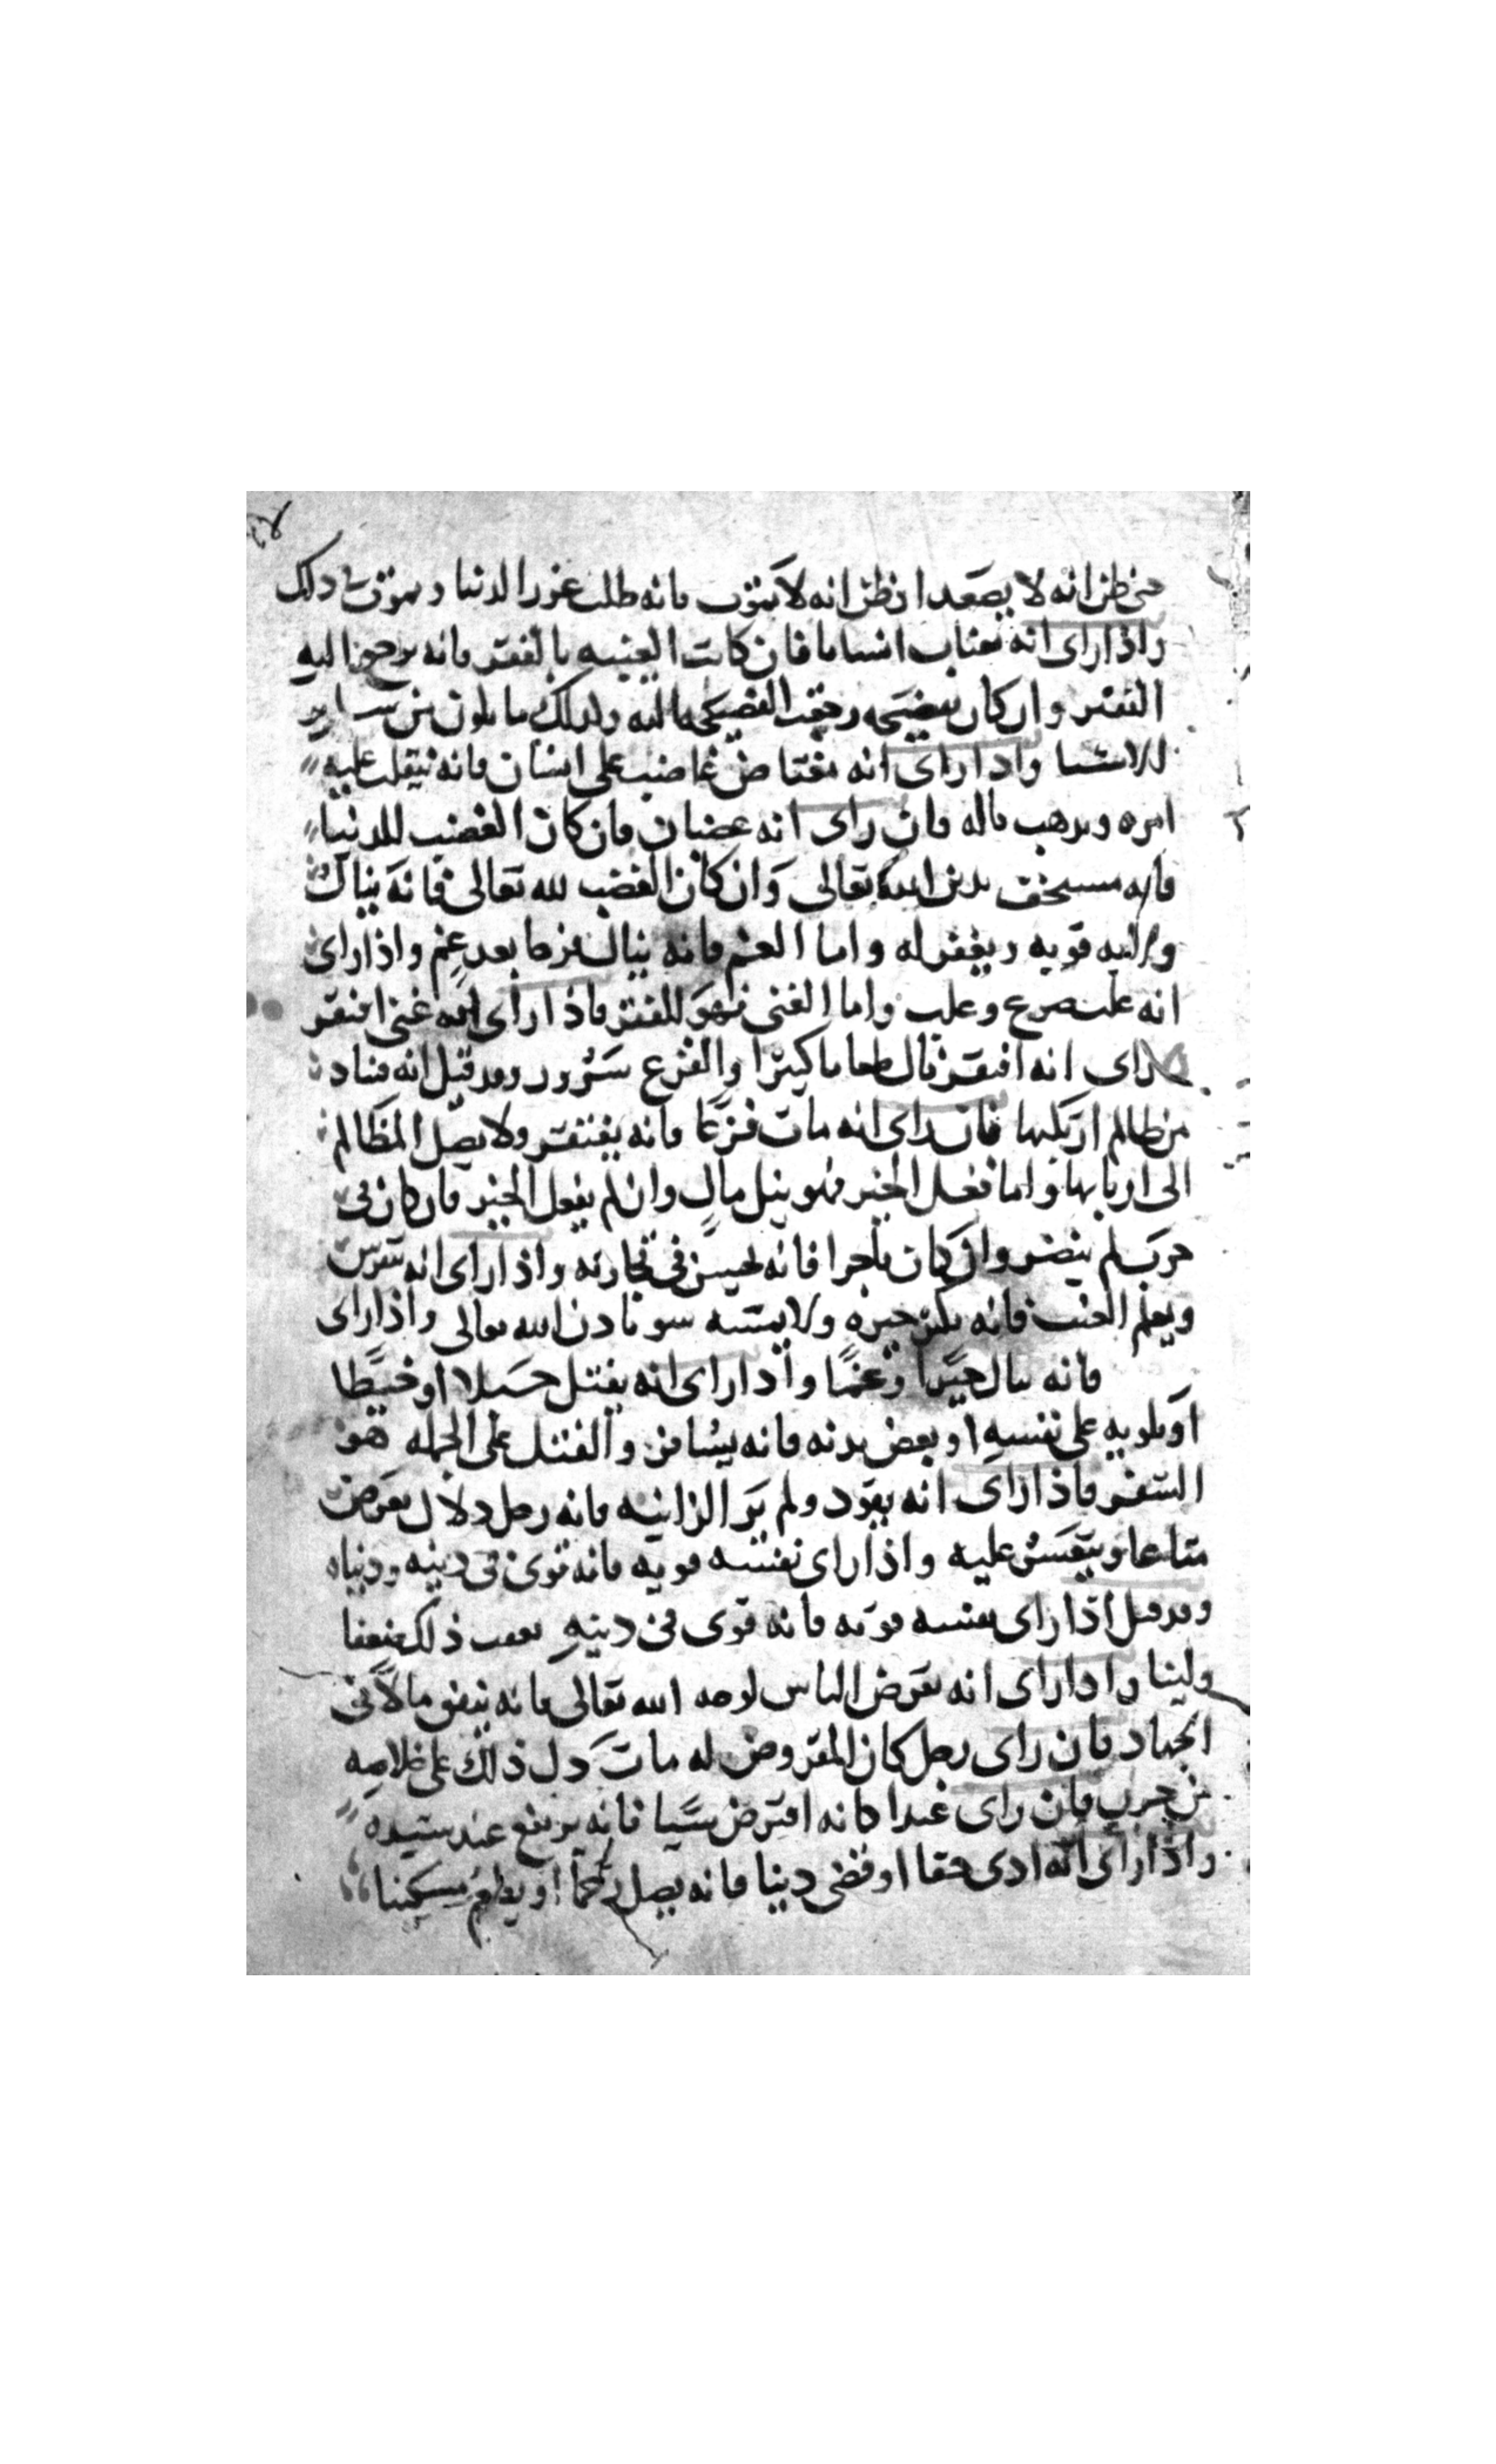 حتى ظن انه لا يصعد او ظن انه لا يموت فانه طلب عز الدنيا ويموت في ذلك
واذا راى انه يغتاب انسانا فان كانت الغيبه بالفقر فانه يرجع اليه
الفقر وان كان بفضيحه رجعت الفضيحه اليه وكذلك ما يكون من ساير
الاشيا واذا راى انه مغتاض غاضب على انسان فانه ينقلب عليه
امره ويذهب ماله فان راى انه غضبان فان كان الغضب للدنيا
فانه مستخف بدين الله تعالى وان كان الغضب لله تعالى فانه ينال
ولايه قويه ويغفر له واما الغم فانه ينال فرحا بعد غم واذا راى
انه غلب صرع وغلب واما الغنى فهو للفقر فاذا راى انه غني افتقر
راى انه افتقر نال طعاما كثيرا والفزع سرور وقد قيل انه مناد
من ظالم ارتكبها فان راى انه مات فزعا فانه يفتقر ولا يصل المظالم
الى اربابها واما فعل الخير فهو نيل مال وان لم يفعل الخير فان كان في
حرب لم ينصر وان كان تاجرا فانه يحسن في تجارته واذا راى انه
ويعلم الغيب فانه يكن خيره ولا يمسه سو باذن الله تعالى واذا راى
فانه ينال وغما واذا راى انه يفتل حبلا او خيطا
او يلويه على نفسه او بعض بدنه فانه يسافر والفتل على الجمله هو
السفر فاذا راى انه يقود ولم ير الزانيه فانه رجل دلال يعرض
متاعا ويتعسر عليه واذا راى نفسه قويه فانه قوي في دينه ودنياه
وقد قيل اذا راى نفسه قوته فانه قوي في دينه يعقب ذلك ضعفا
ولينا واذا راى انه يقرض الناس لوجه الله تعالى فانه ينفق مالا في
الجهاد فان راى رجل كان المقروض له مات دل ذلك على خلاصه
من حرب فان راى عبدا كانه اقترض شيا فانه يرتفع عند سيده
واذا راى انه ادى حقا او قضى دينا فانه يصل رحما او يطعم مسكينا